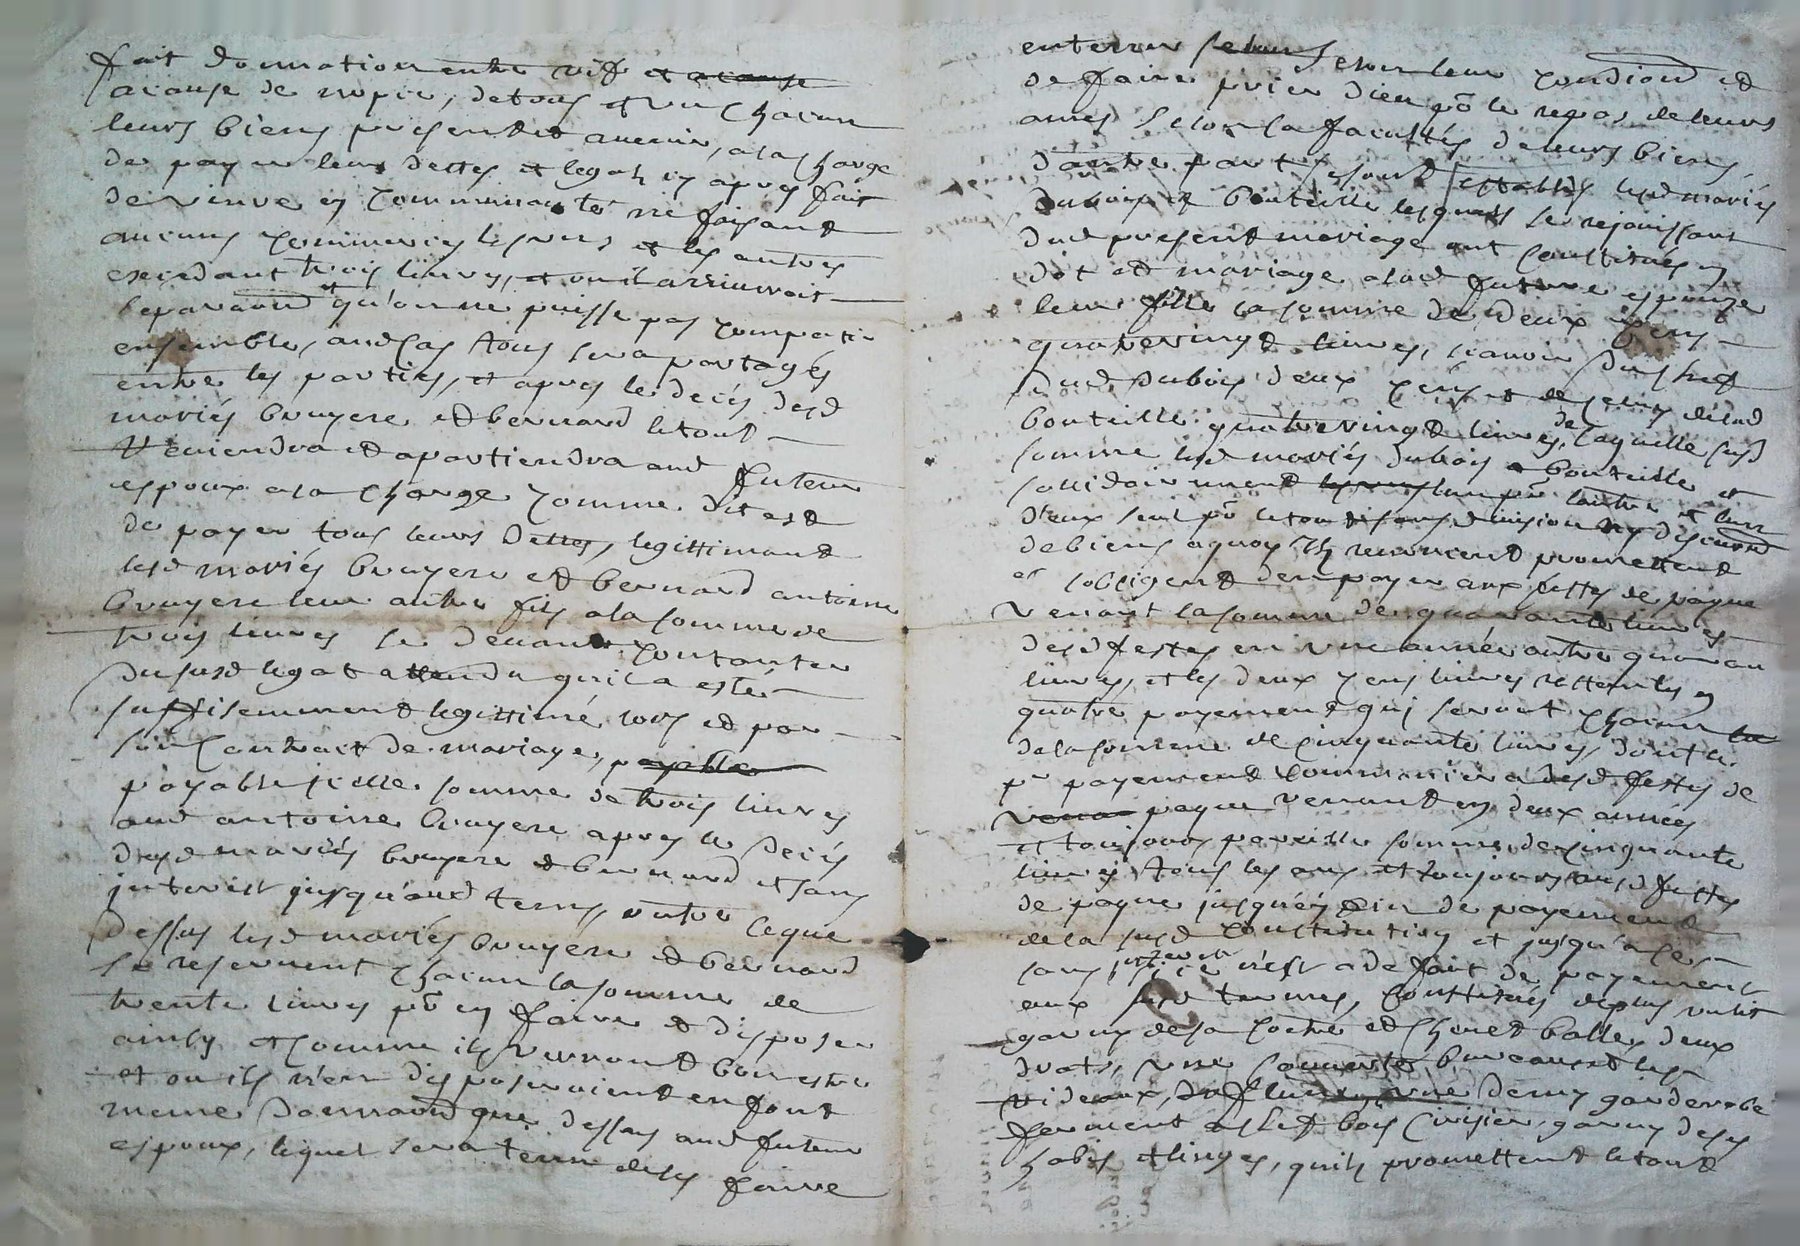 fait donnation entre vif et a cause
a cause de nopce, de tous et un chacun
leurs biens present et avenir, a la charge
de payer leurs dettes et legats et apres fait
de vivre en communauté ne faisant
aucuns les uns et les autres
excedant trois livres, et ou il arriveroit
et qu'on ne puisse pas compatir
ensemble, aud cas tous sera partagés
entre les parties, et apres le decés desd
mariés bruyere et bernard le tout
reviendra et apartiendra aud futeur
espoux a la charge comme dit est
de payer tous leurs dettes, legittimant
lesd mariés bruyere et bernard antoine
bruyere leur autre fils a la somme de
trois livres se devant contanter
du susd legat attendu qu'il a esté
suffisemment legittimé lors et par
son contrait de mariage, payable
payable icelle somme de trois livres
aud antoine bruyere apres le decés
desd mariés bruyere et bernard et sans
interest jusqu'aud tems, outre ce que
dessus lesd mariés bruyere et bernard
se reservent chacun la somme de
trente livres po en faire et disposer
ainsy et comme ils verront bon estre
et ou ils n'en disposeroient en font
meme donnaon que dessus aud futeur
espoux, lequel sera tenu de les faire
enterrer selon selon leur condiaon et
de faire prier dieu po le repos de leurs
ames selon la facultés de leurs biens,
d'autre part se sont establis lesd mariés
dubois et bouteille lesquels se rejouissant
dud present mariage ont constitués en
dot et mariage a lad future espouze
leur fille la somme de deux cens
quatrevingt livres, scavoir du chef
dud dubois deux cens et de celuy de lad
bouteille quatrevingt livres, de laquelle susd
somme lesd mariés dubois et bouteille et
sollidairement lun po lautre et lun
d'eux seul po le tout sans division ny discution
de biens a quoy ils renoncent promettent
et s'obligent d'en payer aux festes de paque
venant la somme de quarante livres
desd festes en une année autre quarante
livres, et les deux cens livres restantes en
quatre payement qui seront chacun
de la somme de cinquante livres, dont le
pr payement commancera desd festes de
paque venant en deux années
et toujours pareille somme de cinquante
livres tous les ans et toujours ausd festes
de paque jusqu'en fin de payement
de la susd constitution et jusqu'a ce
sans interest si ce n'est a defait de payement
aux susd termes, constitués de plus un lit
garny de sa coitre et chevet balles deux
drats, une couverte
rideaux, une demy garderobe
fermant a clef bois cirisier, garny de ses
habis et linges, qu'ils promettent le tout